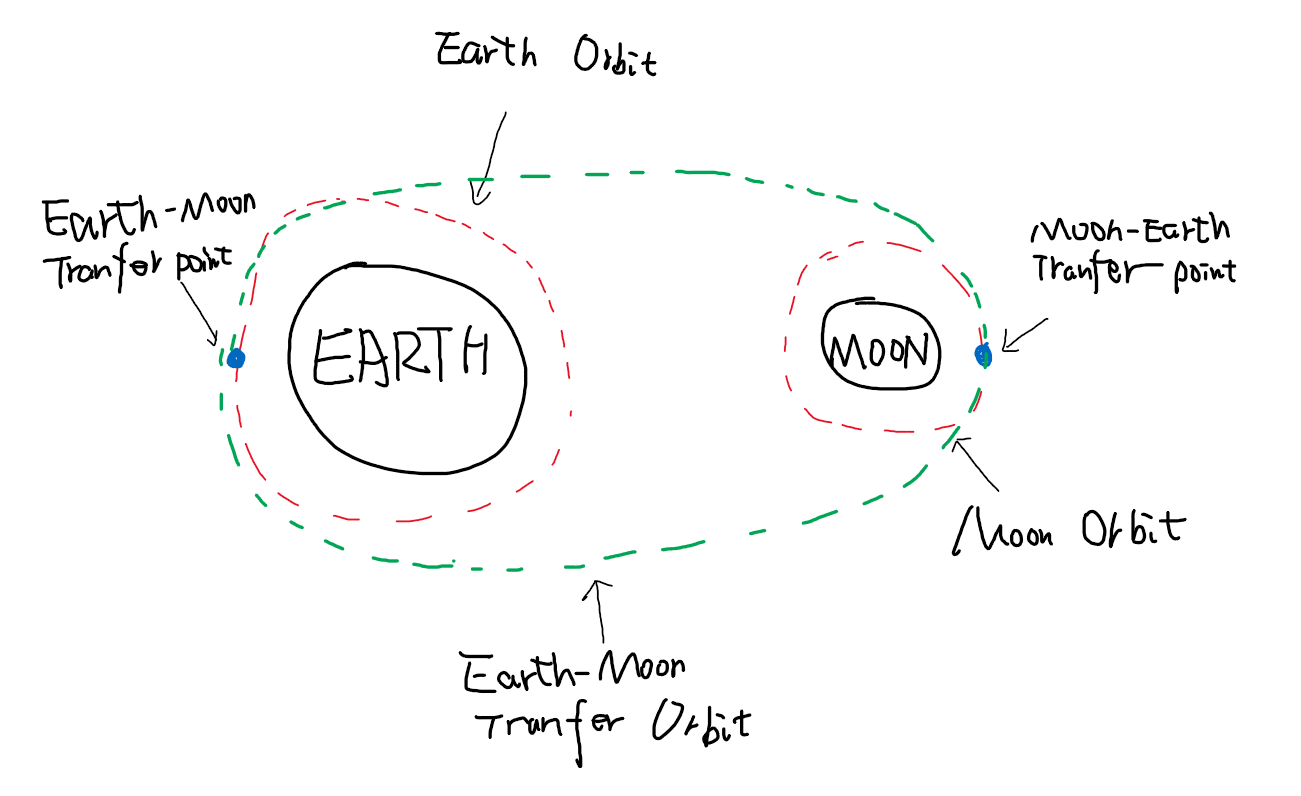 Earth Orbit
Earth-Moon
Tranfer point
Moon-Earth
Tranfer point
EARTH
MOON
Moon Orbit
Earth-Moon
Tranfer Orbit